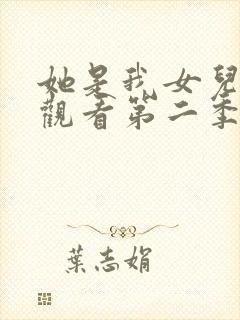 她是我女兒
觀看第二季
葉志娟